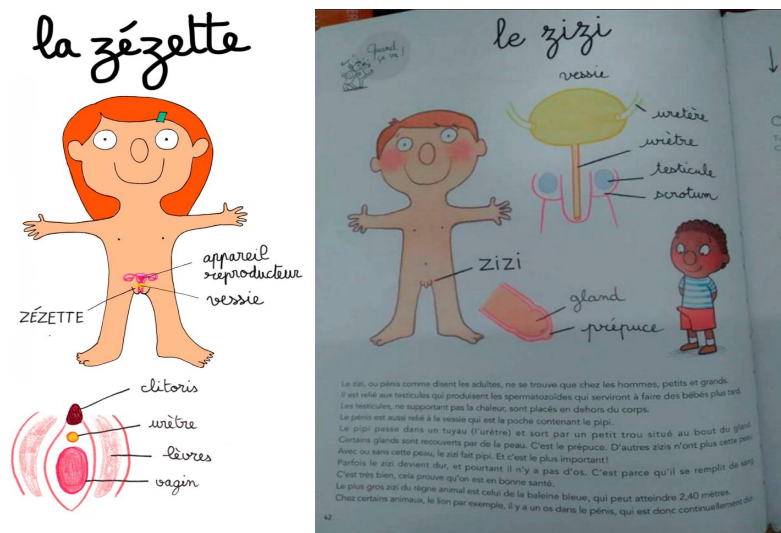 la zézette
appareil
reproducteur
vessie
ZÉZETTE
clitoris
urètre
lèvres
vagin
Quand
ça va !
le zizi
vessie
uretère
urètre
testicule
scrotum
zizi
gland
prépuce
Le zizi, ou pénis comme disent les adultes, ne se trouve que chez les hommes, petits et grands.
Il est relié aux testicules qui produisent les spermatozoïdes qui serviront à faire des bébés plus tard.
Les testicules, ne supportant pas la chaleur, sont placés en dehors du corps.
Le pénis est aussi relié à la vessie qui est la poche contenant le pipi.
Le pipi passe dans un tuyau (l'urètre) et sort par un petit trou situé au bout du gland.
Certains glands sont recouverts par de la peau. C'est le prépuce. D'autres zizis n'ont plus cette peau.
Avec ou sans cette peau, le zizi fait pipi. Et c'est le plus important !
Parfois le zizi devient dur, et pourtant il n'y a pas d'os. C'est parce qu'il se remplit de sang.
C'est très bien, cela prouve qu'on est en bonne santé.
Le plus gros zizi du règne animal est celui de la baleine bleue, qui peut atteindre 2,40 mètres.
Chez certains animaux, le lion par exemple, il y a un os dans le pénis, qui est donc continuellement dur.
42